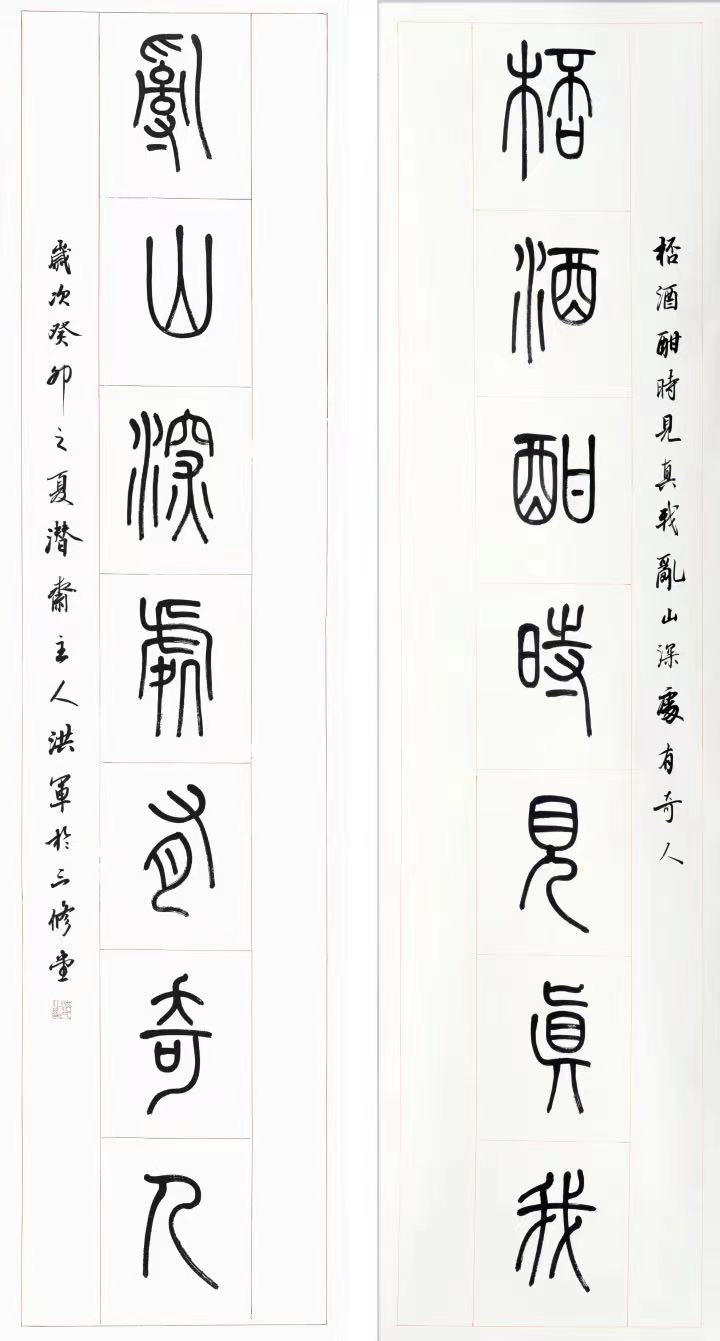 桮酒酣時見真我
桮酒酣時見真我亂山深處有奇人
亂山深處有奇人
歲次癸卯之夏潛齋主人洪軍於三修堂